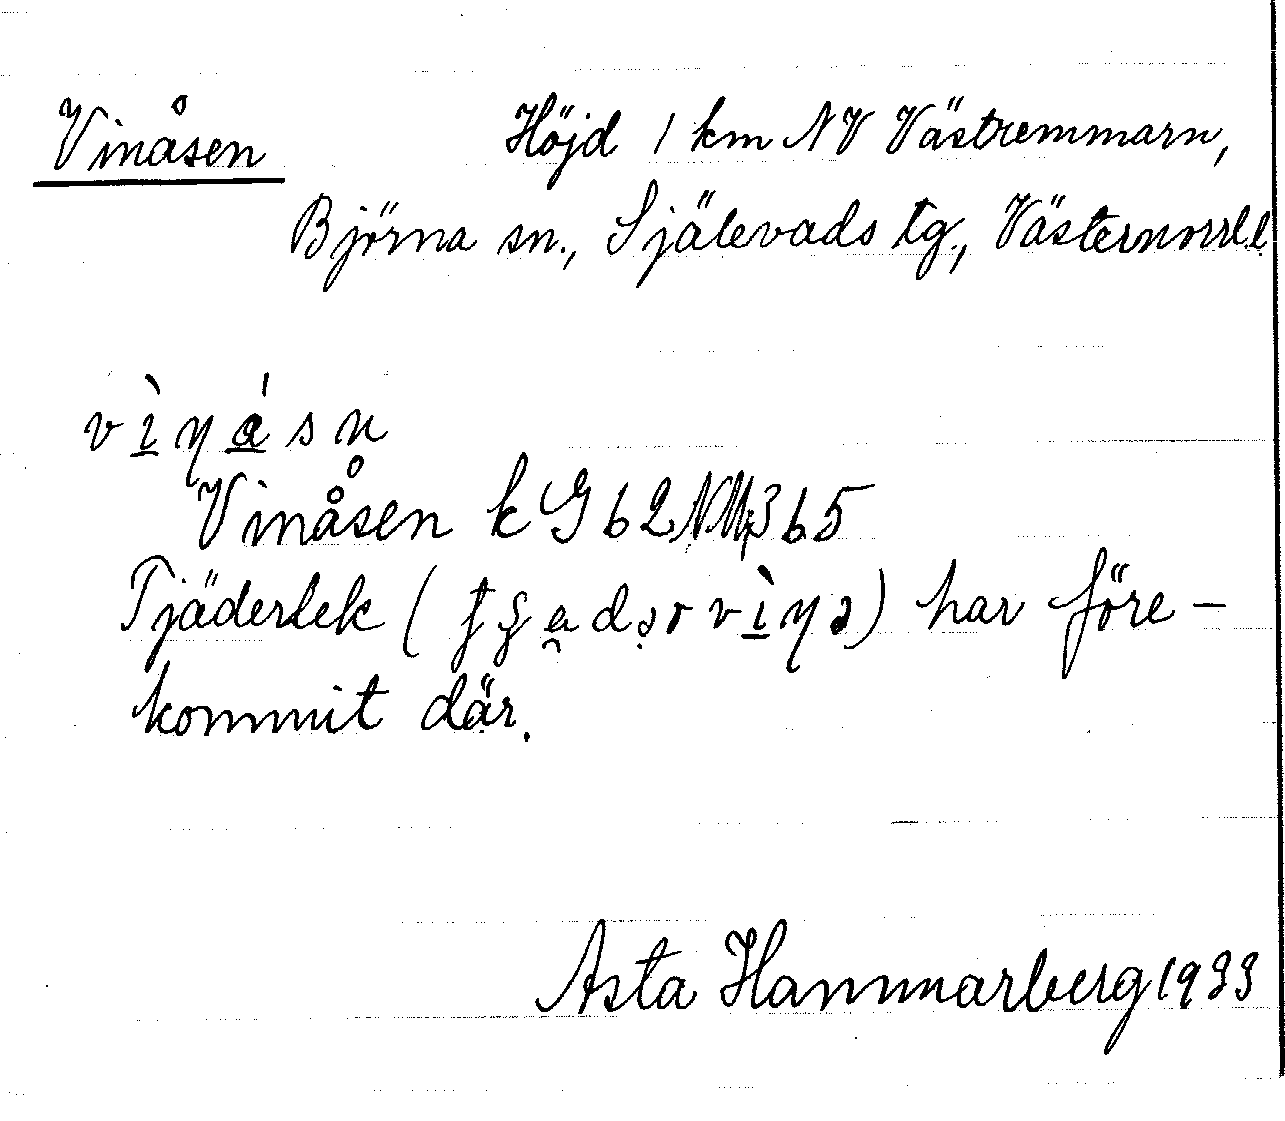 Vinåsen Höjd 1 km NV Västremmarn,
Björna sn., Själevads tg., Västernorrl.
Vinåsen k G 62 365
Tjäderlek ( ) har före-
kommit där.
Asta Hammarberg 1933